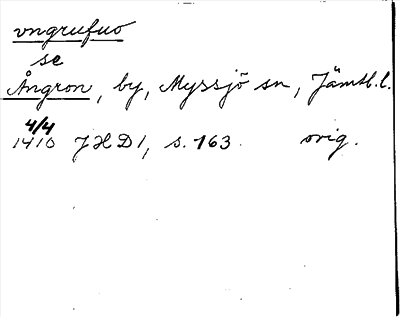 vngrufuo
se
Ångron, by, Myssjö sn, Jämtl. l.
4/4
1410 JHD 1, s. 163. orig.